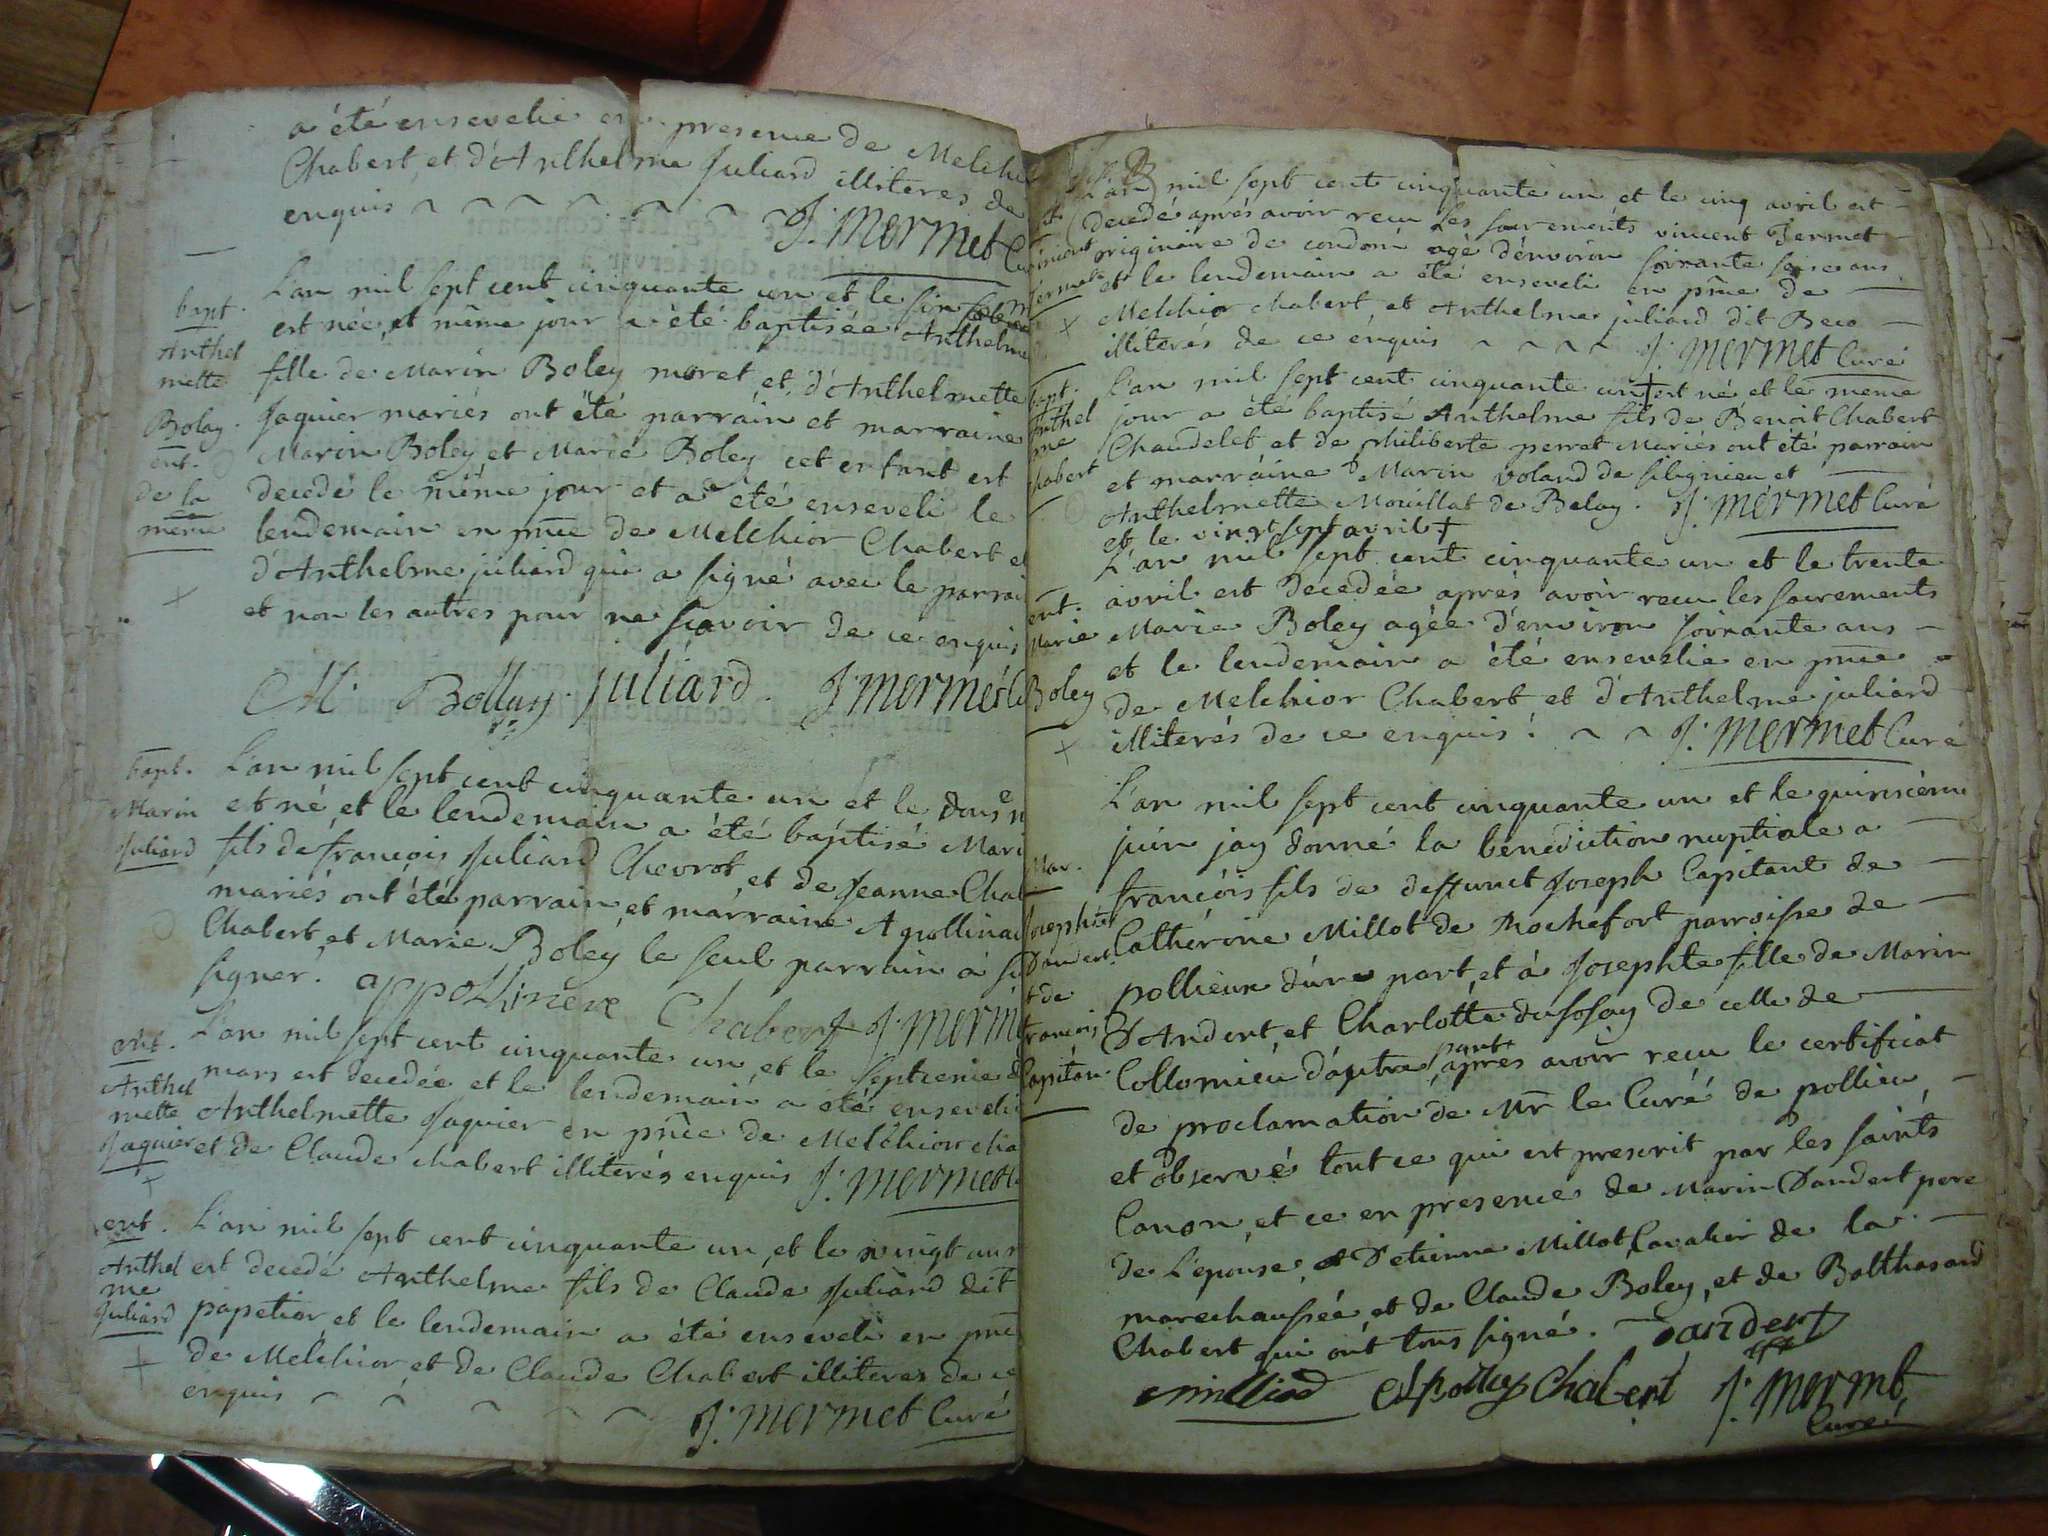 a été ensevelie en presence de Melchi
Chabert, et d'Anthelme Juliard illiteres de
enquis J. Mermet Cu
bapt.
Anthel
mette
Boley.
ent.
de la
même
L'an mil sept cent cinquante un et le six
est née, et même jour a été baptisée Anthelme
fille de Marin Boley moret et d'Anthelmette
Jaquier mariés ont été parrain et marraine
Marin Boley et Marie Boley cet enfant est
decedé le même jour et a été enseveli le
lendemain en pñce de Melchior Chabert et
d'Anthelme juliard qui a signé avec le parrai
et non les autres pour ne scavoir de ce enquis
M. Bolley. juliard. J. Mermet C
bapt.
Marin
Juliard
L'an mil sept cent cinquante un et le dous
est né, et le lendemain a été baptisé Mari
fils de françois Juliard Chevrot, et de Jeanne Chab
mariés ont été parrain, et marraine Apollinai
Chabert, et Marie Boley le seul parrain a s
signer. appollinere Chabert J. Merm
ent.
Anthel
mette
Jaquier
L'an mil sept cent cinquante un, et le septieme
mars est decedée et le lendemain a été enseveli
Anthelmette Jaquier en pñce de Melchior cha
et de Claude chabert illiterés enquis J. Mermet C
ent.
Anthel
me
Juliard
L'an mil sept cent cinquante un, et le vingt un
est decedé Anthelme fils de Claude Juliard dit
papetior et le lendemain a été enseveli en pñc
de Melchior et de Claude Chabert illiteres de ce
enquis J. Mermet Curé
L'an mil sept cent cinquante un et le cinq avril est
decedé après avoir recu les sacrements vincent Fermet
originaire de condom agé d'environ soixante seise ans
et le lendemain a été enseveli en pñce de
Melchior chabert, et Anthelme juliard dit Beco
illiterés de ce enquis J. Mermet Curé
bapt.
Anthel
me
chabert
L'an mil sept cent cinquante un + est né, et le meme
jour a été baptisé Anthelme fils de Benoit Chabert
Chaudelet et de philiberte perret Mariés ont été parrain
et marraine Marin voland de silignieu et
Anthelmette Mouillat de Belay. J. Mermet Curé
et le vingt sept avril +
ent.
Marie
Boley
L'an mil sept cent cinquante un et le trente
avril est decedée après avoir recu les sacrements
Marie Boley agée d'environ soixante ans
et le lendemain a été ensevelie en pñce
de Melchior Chabert, et d'Anthelme juliard
illiterés de ce enquis. J. Mermet Curé
Mar.
Josephte
Dandert
et de
françois
Capitan
L'an mil sept cent cinquante un et le quinsieme
juin jay donné la benediction nuptiale a
françois fils de deffunct Joseph Capitant de
Catherine Millot de Rochefort parroisse de
pollieux d'une part, et à Josephte fille de Marin
D'Andert, et Charlotte dusosay de celle de
Collomieu d'autre part après avoir recu le certificat
de proclamation de Mr le Curé de pollieu,
et observé tout ce qui est prescrit par les saints
Canon, et ce en presence de Marin Dandert pere
de L'epouse, et D'etienne Millot Cavalier de la
marechaussée, et de Claude Boley, et de Balthasard
Chabert qui ont tous signé. Dandert
milliod Chabert J. Mermet
Curé